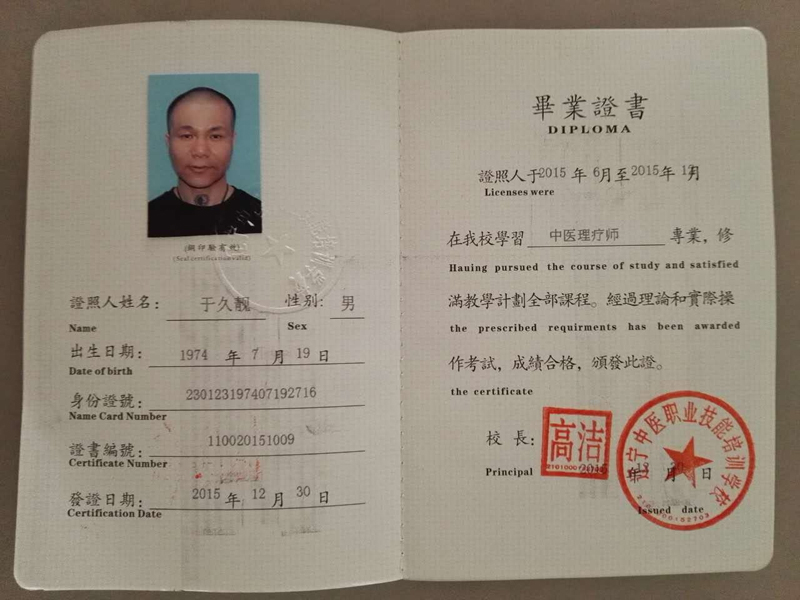 (鋼印驗寬效)
(Seal certification valid)
證照人姓名： 于久靓 性别: 男
Name Sex
出生日期: 1974 年 7 月 19 日
Date of birth
身份證號： 230123197407192716
Name Card Number
證書編號： 110020151009
Certificate Number
發證日期: 2015 年 12 月 30 日
Certification Date
畢業證書
DIPLOMA
證照人于2015 年 6月至2015年 12月
Licenses were
在我校學習 中医理疗师 專業，修
Hauing pursued the course of study and satisfied
滿教學計劃全部課程。經過理論和實際操
the prescribed requirments has been awarded
作考試，成績合格，頒發此證。
the certificate
校 長：
高洁
Principal 年 月 日
Issued date
辽宁中医职业技能培训学校